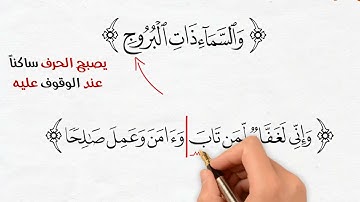 ﴿ وَالسَّمَآءِ ذَاتِ الْبُرُوجِ ﴾
يصبح الحرف ساكناً
عند الوقوف عليه
﴿ وَإِنِّي لَغَفَّارٌ لِّمَن تَابَ وَءَامَنَ وَعَمِلَ صَالِحًا ﴾